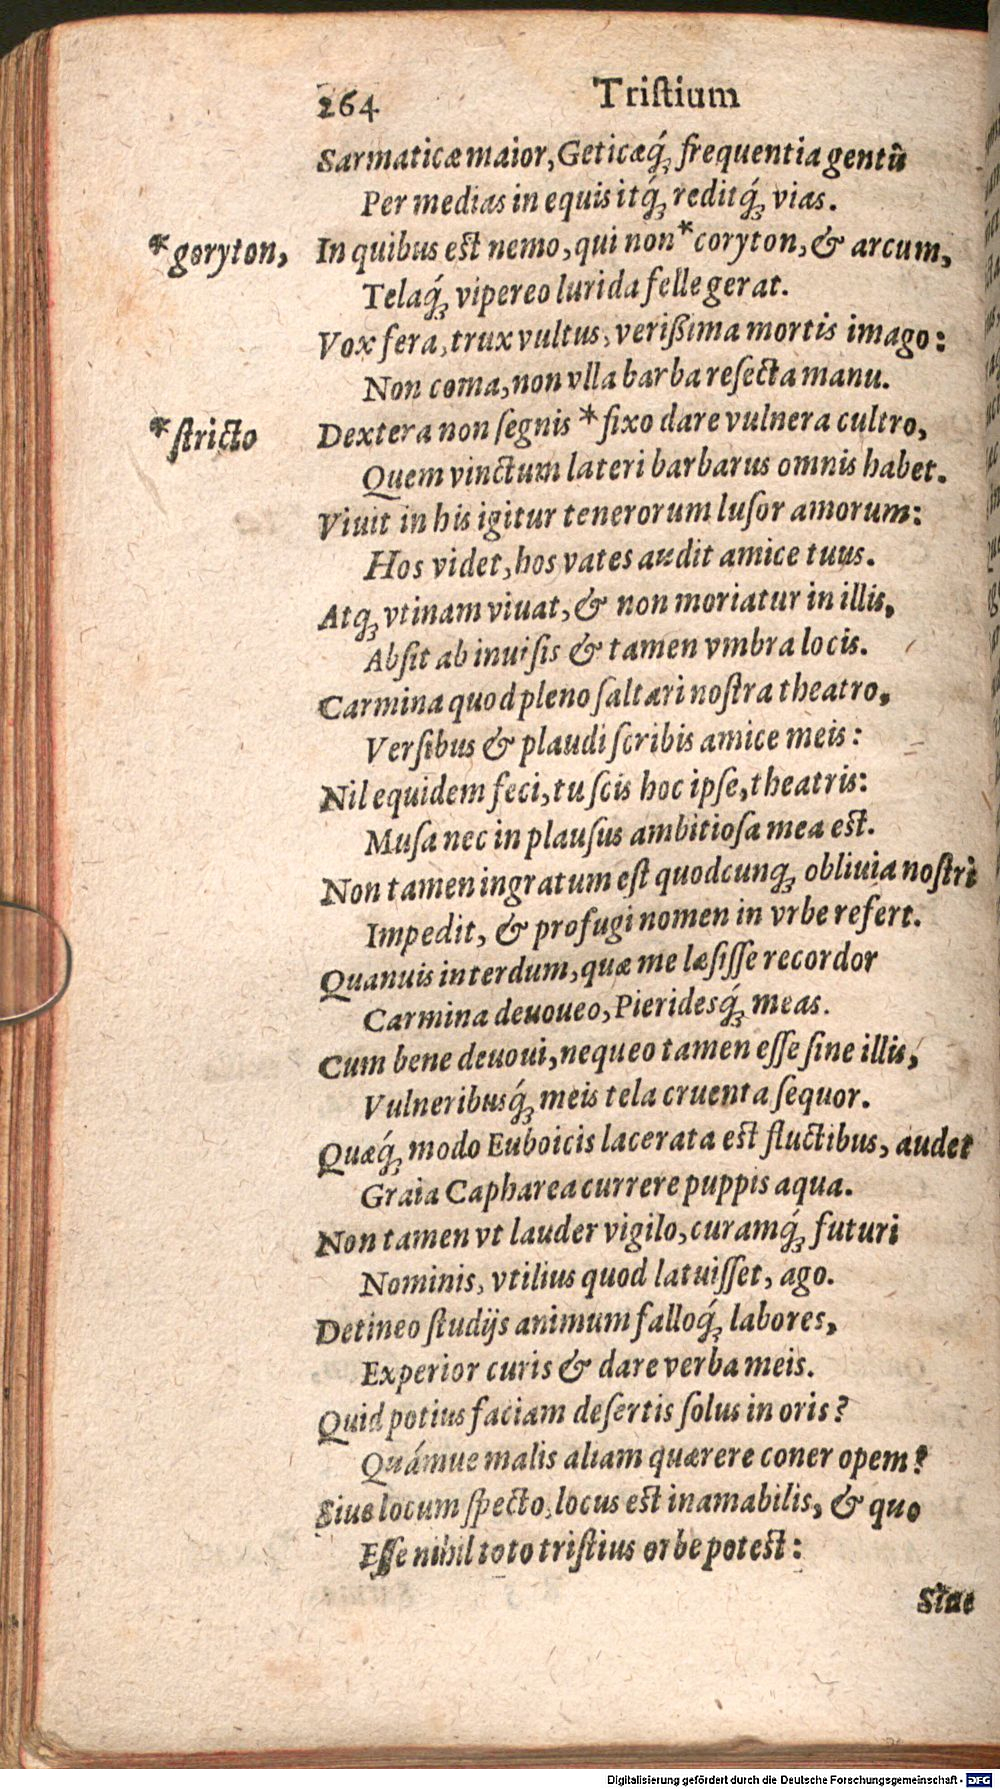 264 Tristium
Sarmaticæ maior, Geticæq́; frequentia gentũ
Per medias in equis itq́; reditq́; vias.
*goryton, In quibus est nemo, qui non *coryton, & arcum,
Telaq́; vipereo lurida felle gerat.
Vox fera, trux vultus, verißima mortis imago:
Non coma, non vlla barba resecta manu.
*stricto Dextera non segnis *fixo dare vulnera cultro,
Quem vinctum lateri barbarus omnis habet.
Viuit in his igitur tenerorum lusor amorum:
Hos videt, hos vates audit amice tuus.
Atq; vtinam viuat, & non moriatur in illis,
Absit ab inuisis & tamen vmbra locis.
Carmina quod pleno saltari nostra theatro,
Versibus & plaudi scribis amice meis:
Nil equidem feci, tu scis hoc ipse, theatris:
Musa nec in plausus ambitiosa mea est.
Non tamen ingratum est quodcunq; obliuia nostri
Impedit, & profugi nomen in vrbe refert.
Quanuis interdum, quæ me læsisse recordor
Carmina deuoueo, Pieridesq́; meas.
Cum bene deuoui, nequeo tamen esse sine illis,
Vulneribusq́; meis tela cruenta sequor.
Quæq́; modo Euboicis lacerata est fluctibus, audet
Graia Capharea currere puppis aqua.
Non tamen vt lauder vigilo, curamq́; futuri
Nominis, vtilius quod latuisset, ago.
Detineo studijs animum falloq́; labores,
Experior curis & dare verba meis.
Quid potius faciam desertis solus in oris?
Quámue malis aliam quærere coner opem?
Siue locum specto, locus est inamabilis, & quo
Esse nihil toto tristius orbe potest:
Siue
Digitalisierung gefördert durch die Deutsche Forschungsgemeinschaft - DFG